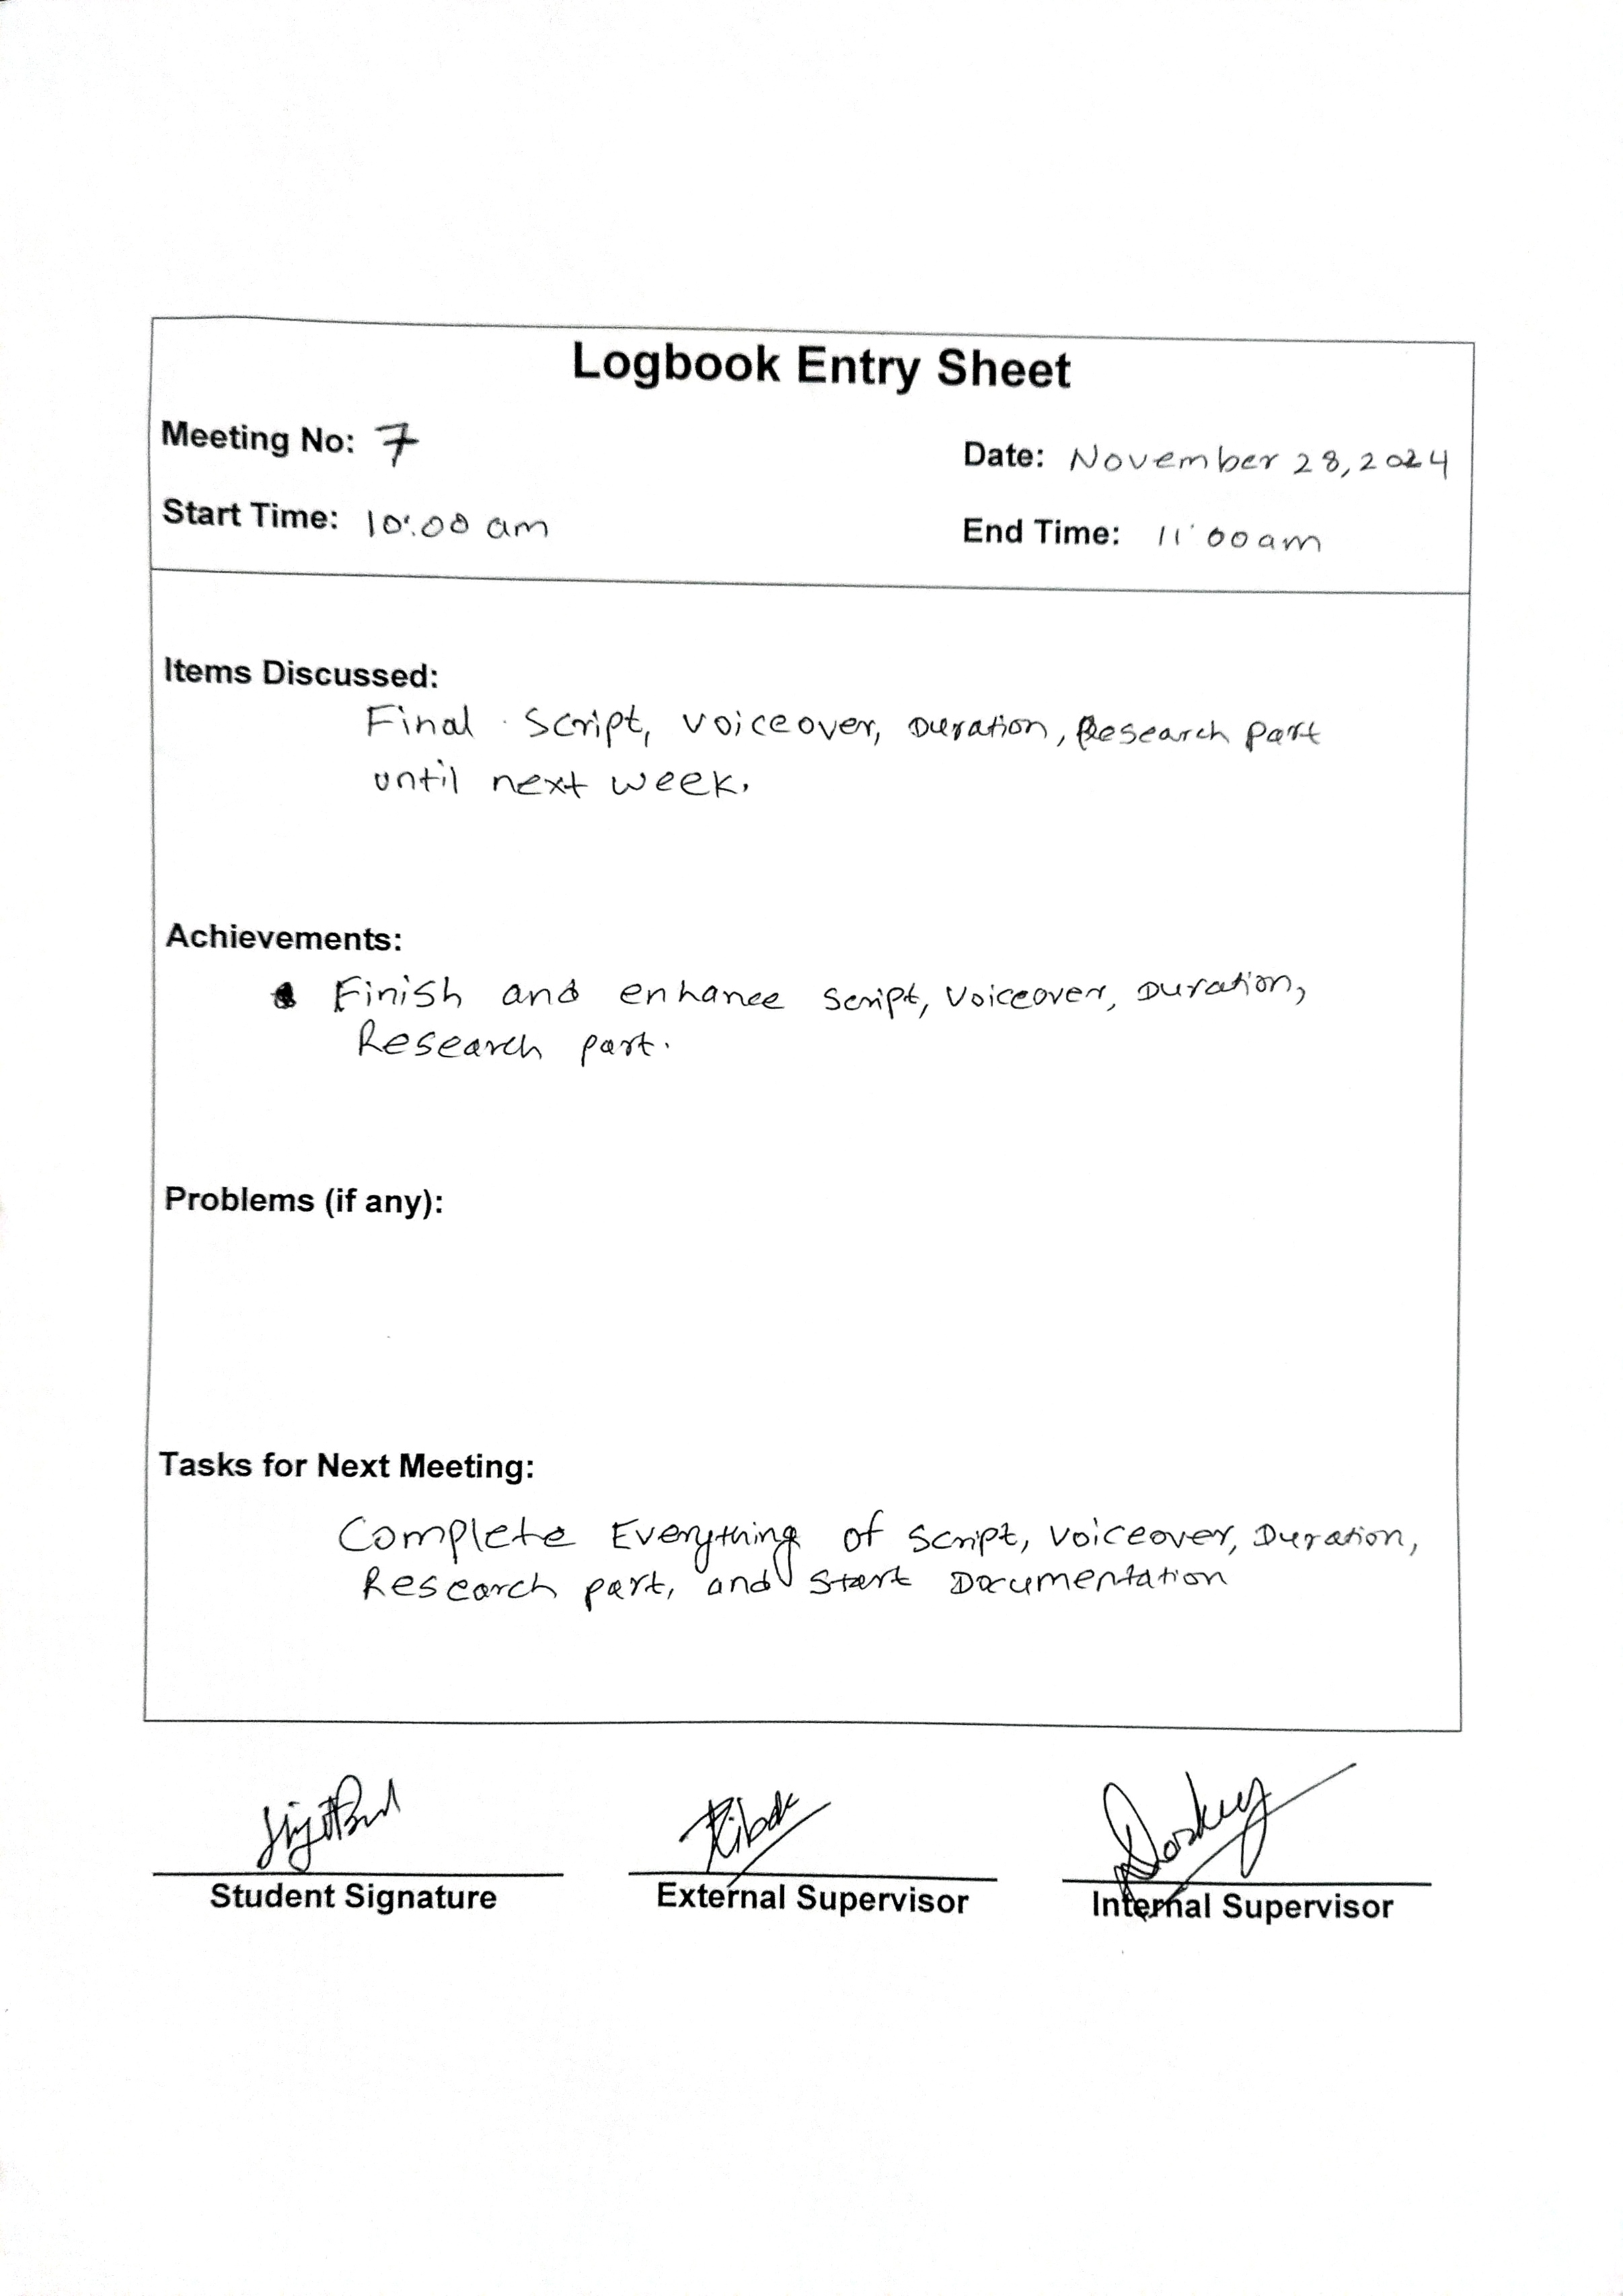 Logbook Entry Sheet
Meeting No: 7
Date: November 28, 2024
Start Time: 10:00 am
End Time: 11:00 am
Items Discussed:
Final Script, Voiceover, Duration, Research part
until next week.
Achievements:
Finish and enhance script, Voiceover, Duration,
Research part.
Problems (if any):
Tasks for Next Meeting:
Complete Everything of script, Voiceover, Duration,
Research part, and start Documentation
Student Signature
External Supervisor
Internal Supervisor